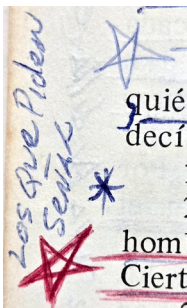 Los que Piden
Señal
quié
decí
hom
Ciert